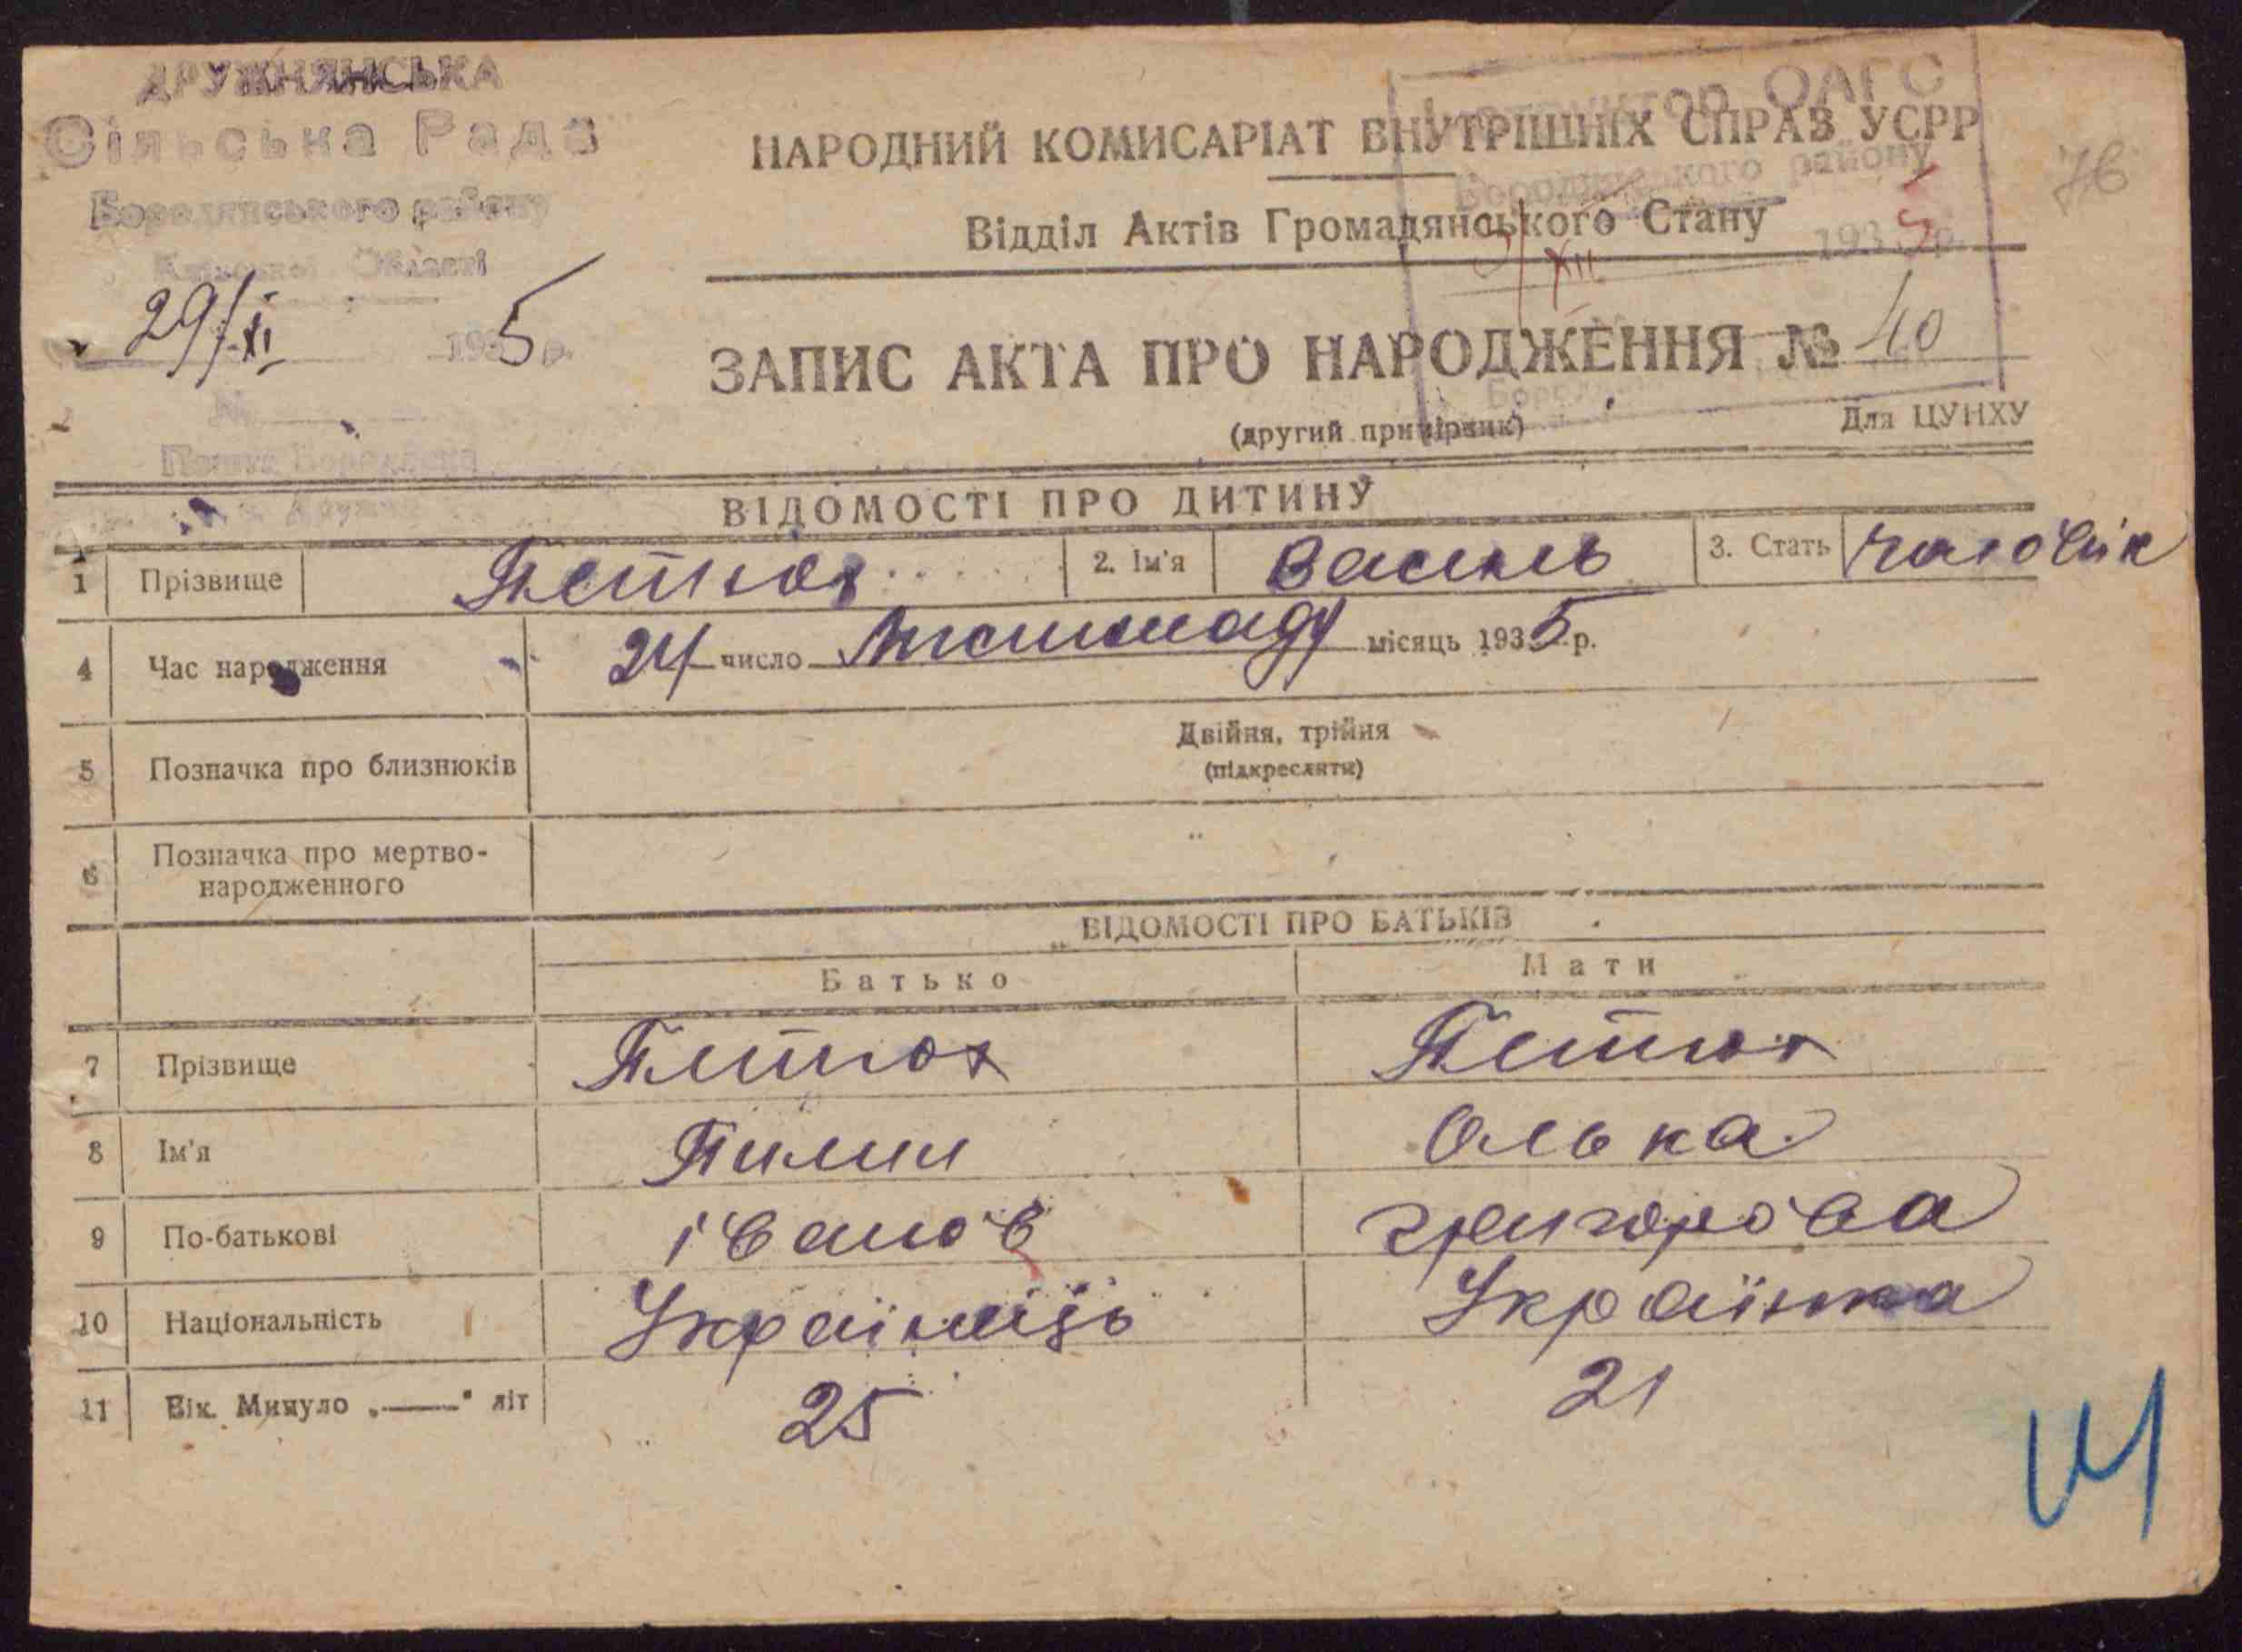 ДРУЖНЯНСЬКА
Сільська Рада
Бородянського району
Київської Області
29/XI 1935 р.
№
Пошта Бородянка
Інструктор ОАГС
Бородянського району
9/XII 1935 р.
76
НАРОДНИЙ КОМИСАРІАТ ВНУТРІШНІХ СПРАВ УСРР
Відділ Актів Громадянського Стану
ЗАПИС АКТА ПРО НАРОДЖЕННЯ № 40
(другий примірник)
Для ЦУНХУ
ВІДОМОСТІ ПРО ДИТИНУ
1 Прізвище Петюх 2. Ім'я Василь 3. Стать чоловік
4 Час народження 24 число Листопаду місяць 1935 р.
5 Позначка про близнюків Двійня, трійня
(підкреслити)
6 Позначка про мертво-
народженного
ВІДОМОСТІ ПРО БАТЬКІВ
Батько Мати
7 Прізвище Петюх Петюх
8 Ім'я Пилип Олька
9 По-батькові іванов григорова
10 Національність Українець Українка
11 Вік. Минуло „——" літ 25 21